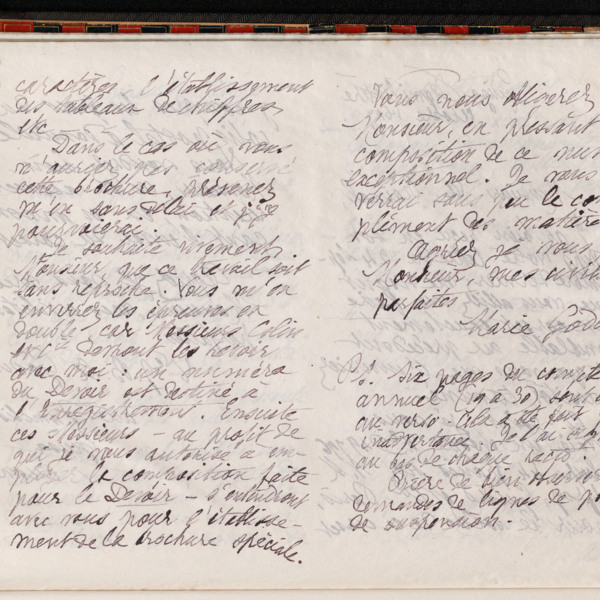 caractères l'établissement
des tableaux de chiffres
etc
Dans le cas où vous
n'auriez pas conservé
cette brochure, prévenez
m'en sans délai et j'y
pourvoierai.
Je souhaite vivement,
Monsieur, que ce travail soit
sans reproche. Vous m'en
enverrez les épreuves en
double car Messieurs Colin
et Cie devront les revoir
avec moi : un numéro
du Devoir est destiné à
l'Enregistrement. Ensuite
ces Messieurs - au profit de
qui je vous autorise à
la composition faite
pour le Devoir - s'entendront
avec vous pour l'établisse-
ment de la brochure spéciale.
Vous nous obligerez
Monsieur, en pressant
composition de ce
exceptionnel. Je vous
verrai sous peu le com
plément des matières
Agréez je vous
Monsieur, mes civilités
parfaites
Marie God
PS. Six pages du compte
annuel (19 à 30) sont
au verso. Cela a été fait
inadvertance. Je l'ai
au bas de chaque recto.
Prière de bien
demandes de lignes de
de suspension.